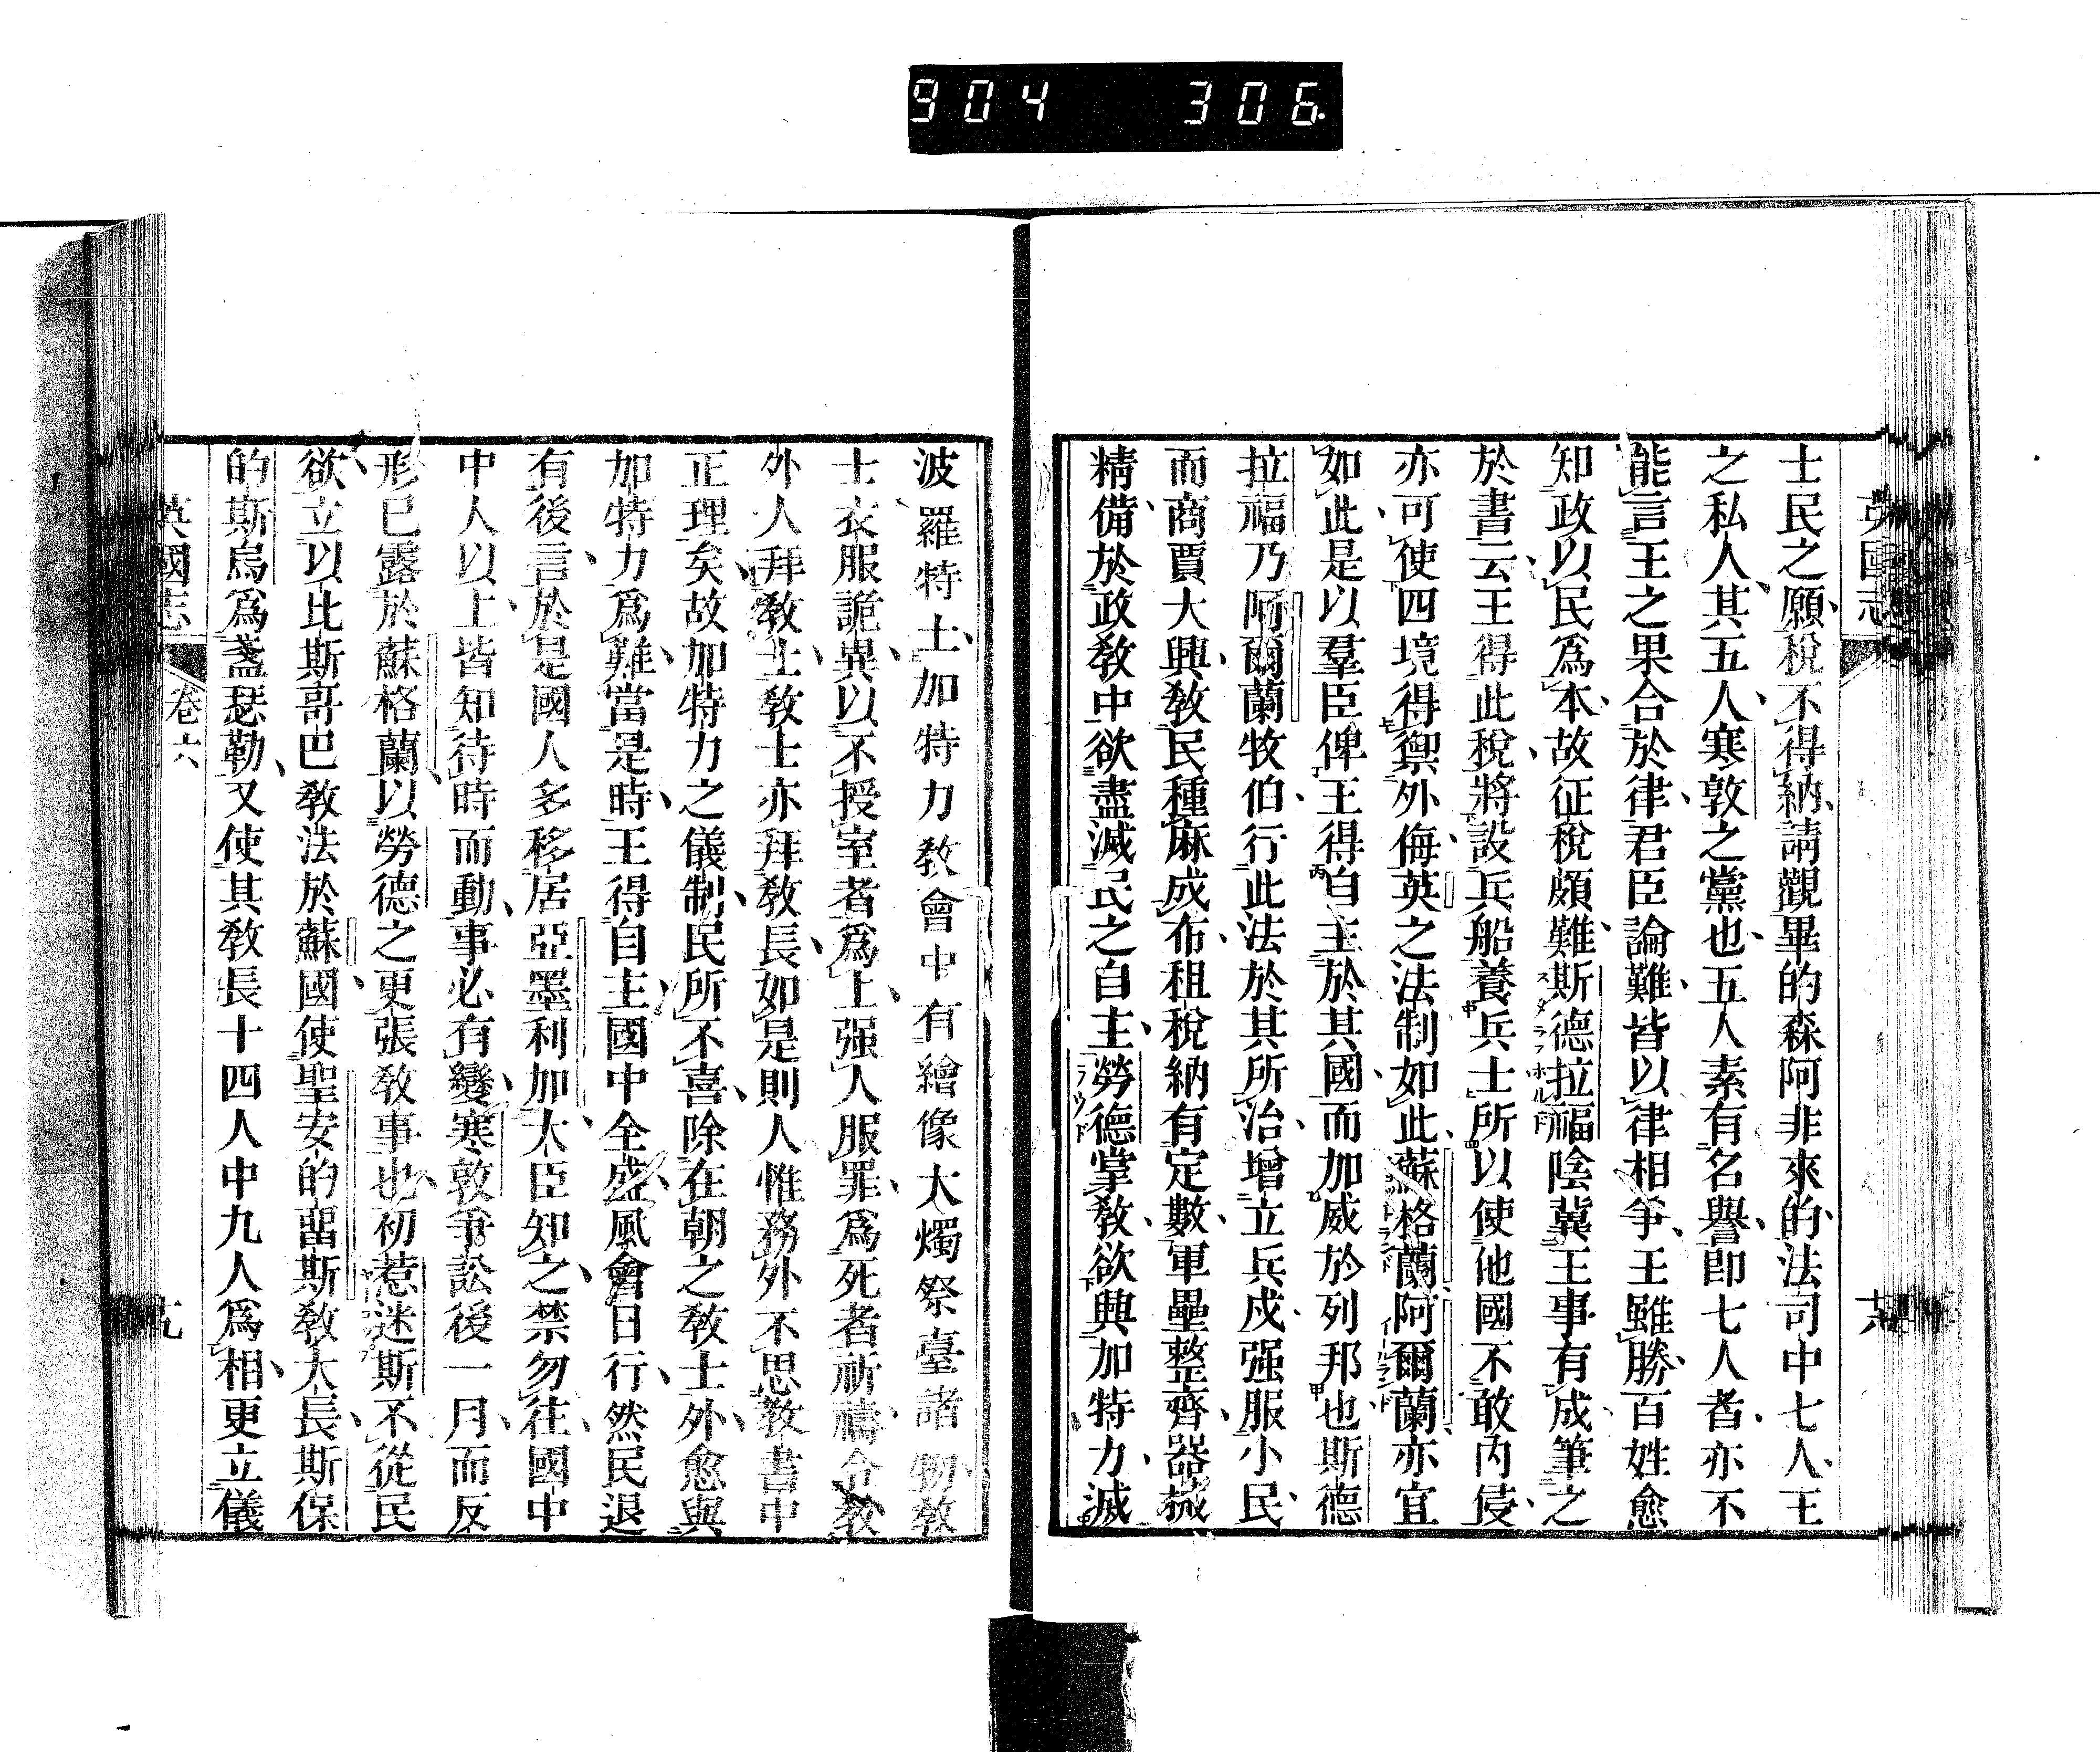 904 306
英國志
士民之願稅不得納請觀畢的森阿非來的法司中七人王
之私人其五人寒敦之黨也五人素有名譽卽七人者亦不
能言王之果合於律君臣論難皆以律相爭王雖勝百姓愈
知政以民爲本故征稅頗難斯德拉福陰冀王事有成筆之
於書云王得此稅將設兵船養兵士所以使他國不敢內侵
亦可使四境得禦外侮英之法制如此蘇格蘭阿爾蘭亦宜
如此是以羣臣俾王得自主於其國而加威於列邦也斯德
拉福乃阿爾蘭牧伯行此法於其所治增立兵戍强服小民
而商賈大興敎民種麻成布租稅納有定數軍壘整齊器械
精備於政敎中欲盡滅民之自主勞德掌敎欲興加特力滅
波羅特士加特力敎會中有繪像大燭祭臺諸物敎
士衣服詭異以不授室者爲上强人服罪爲死者祈禱令敎
外人拜敎士敎士亦拜敎長如是則人惟務外不思敎書中
正理矣故加特力之儀制民所不喜除在朝之敎士外愈與
加特力爲難當是時王得自主國中全盛風會日行然民退
有後言於是國人多移居亞墨利加大臣知之禁勿往國中
中人以上皆知待時而動事必有變寒敦爭訟後一月而反
形已露於蘇格蘭以勞德之更張敎事也初惹迷斯不從民
欲立以比斯哥巴敎法於蘇國使聖安的畱斯敎大長斯保
的斯烏爲盞瑟勒又使其敎長十四人中九人爲相更立儀
英國志
卷六